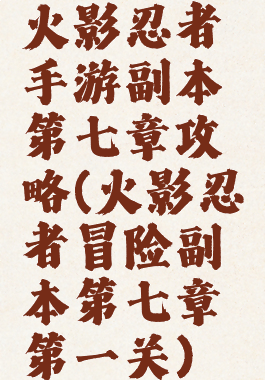 火影忍者
手游副本
第七章攻
略(火影忍
者冒险副
本第七章
第一关)